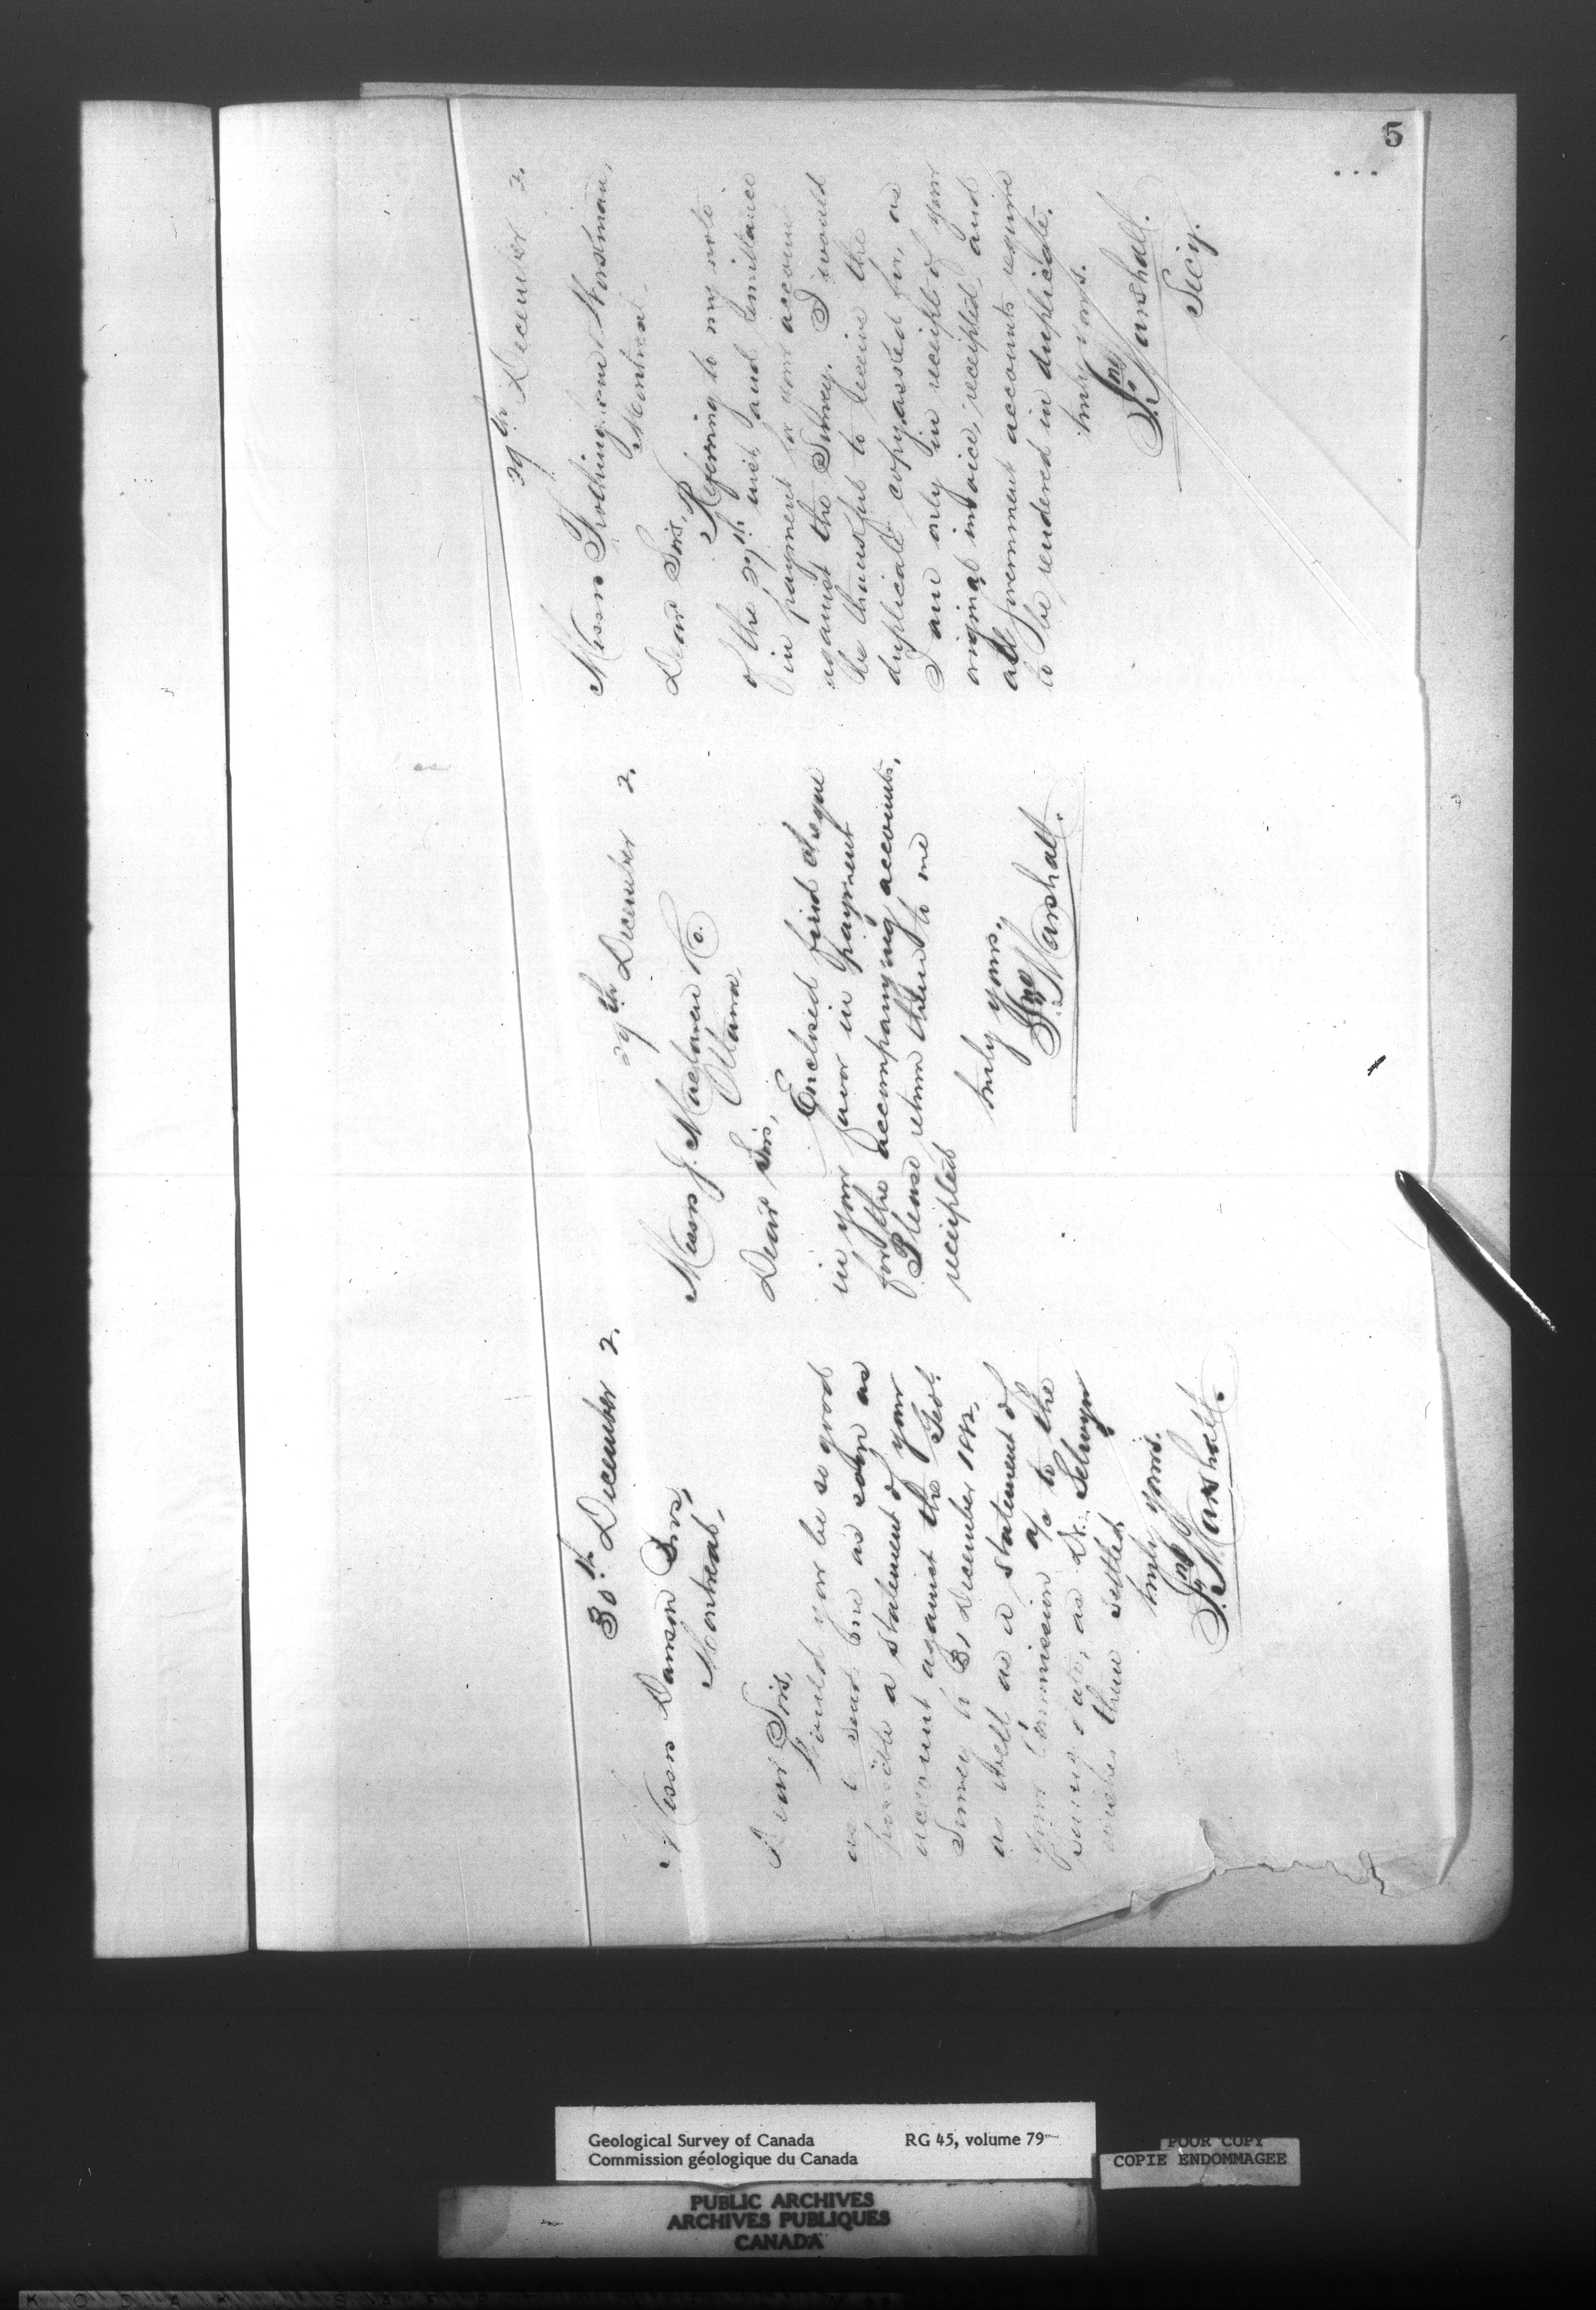 5
30th December 2.
Messrs Dawson Bros,
Montreal,
Dear Sirs,
Would you be so good
as to send me as soon as
possible a statement of your
account against the Geol.
Survey to 31 December 1882,
as well as a statement of
your Commission a/c to the
same date, as Dr. Selwyn
wishes them settled.
truly yours.
Jno Marshall.
29th December 2.
Messrs J. Maclaren & Co.
Ottawa,
Dear Sirs,
Enclosed find cheque
in your favor in payment
for the accompanying accounts,
Please return them to me
receipted
truly yours,
Jno Marshall.
29th December 2.
Messrs Frothingham & Workman,
Montreal.
Dear Sirs,
Referring to my note
of the 27th inst and remittance
in payment for your account
against the Survey. I would
be thankful to receive the
duplicate copy asked for, as
I am only in receipt of your
original invoice, receipted, and
all government accounts require
to be rendered in duplicate.
truly yours.
Jno Marshall.
Secy.
Geological Survey of Canada RG 45, volume 79
Commission géologique du Canada
POOR COPY
COPIE ENDOMMAGEE
PUBLIC ARCHIVES
ARCHIVES PUBLIQUES
CANADA